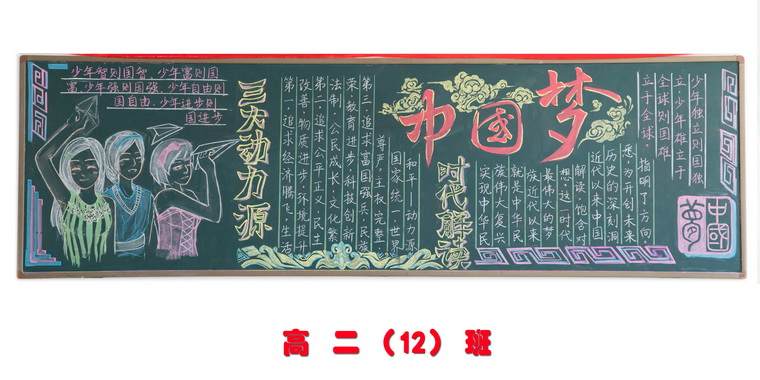 少年智则国智，少年富则国
富，少年强则国强，少年自由则
国自由，少年进步则
国进步
三大动力源
第一追求经济腾飞，生活
改善，物质进步，环境提升
第二追求公平正义，民主
法制，公民成长，文化繁
荣，教育进步，科技创新
第三追求富国强兵，民族
尊严，主权完整
国家统一，世界
和平——动力源
中国梦
时代解读
实现中华民
族伟大复兴
就是中华民
族近代以来
最伟大的梦
想，这一时代
解读，饱含对
近代以来中国
历史的深刻洞
悉，为开创未来
指明了方向
少年独立则国独
立，少年雄立于
全球则国雄
立于全球，
中國
夢
高二（12）班